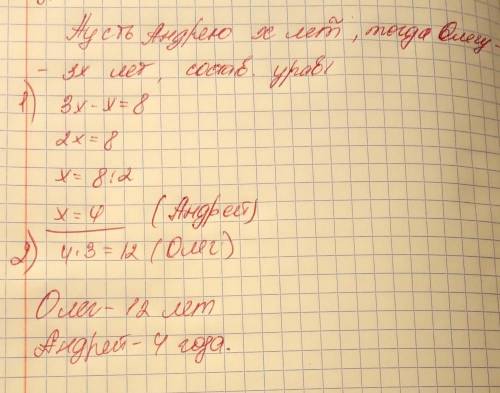 Пусть Андрею x лет, тогда Олегу -
- 3x лет, состав. урав.
1) 3x - x = 8
2x = 8
x = 8 : 2
x = 4 (Андрей)
2) 4 · 3 = 12 (Олег)
Олег - 12 лет
Андрей - 4 года.